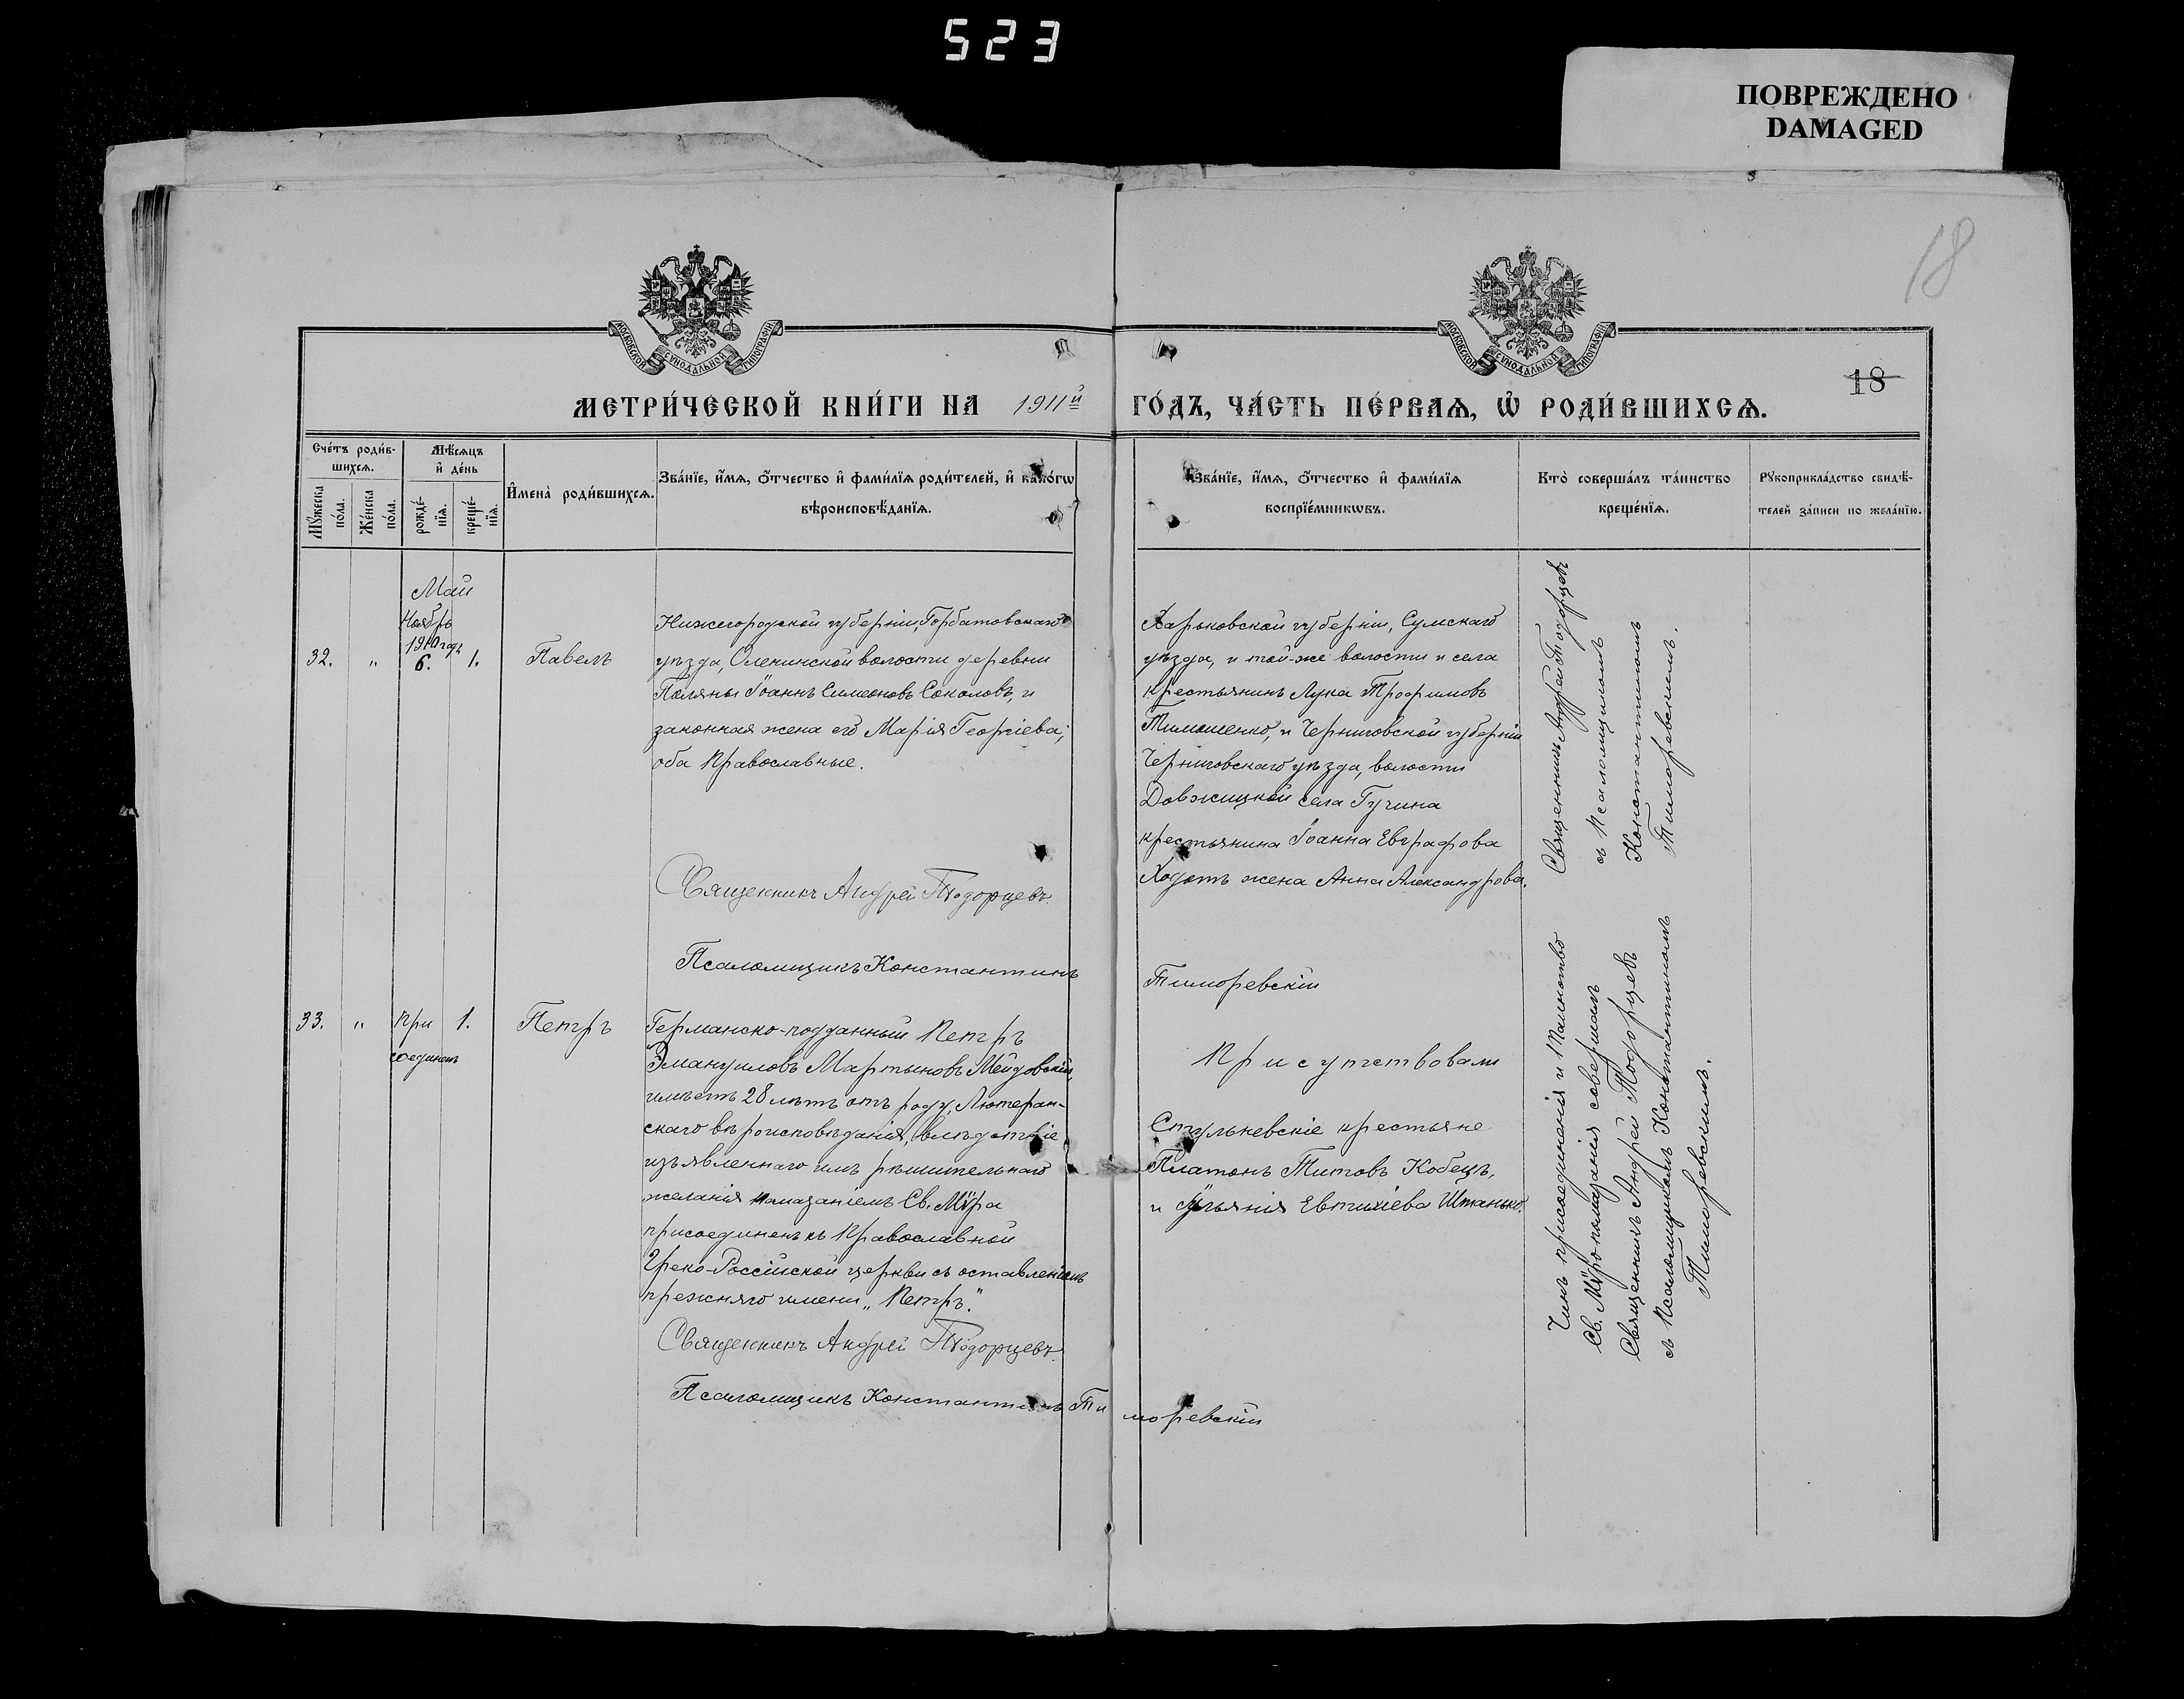 523
ПОВРЕЖДЕНО
DAMAGED
18
МОСКОВСКОЙ СѴНОДАЛЬНОЙ ТИПОГРАФІИ
МОСКОВСКОЙ СѴНОДАЛЬНОЙ ТИПОГРАФІИ
18
МЕТРИ́ЧЕСКОЙ КНИ́ГИ НА 1911й
ГО́ДЪ, ЧА́СТЬ ПЕ́РВАѦ, Ѡ҆ РОДИ́ВШИХСѦ.
Сче́тъ роди́в-
шихсѧ.
Мꙋ́жеска
по́ла.
Же́нска
по́ла.
Мѣ́сѧцъ
и҆ де́нь
рожде́-
нїѧ.
креще́-
нїѧ.
И҆мена̀ роди́вшихсѧ.
Зва́нїе, и҆́мѧ, ѻ҆́тчество и҆ фами́лїѧ роди́телей, и҆ како́гѡ
вѣроисповѣ́данїѧ.
Зва́нїе, и҆́мѧ, ѻ҆́тчество и҆ фами́лїѧ
воспрїе́мникѡвъ.
Кто̀ соверша́лъ та́инство
креще́нїѧ.
Рꙋкоприкла́дство свидѣ́-
телей за́писи по жела́нїю.
Май
Ноябрь
1910 годъ
32. " 6. 1. Павелъ
Нижегородской губерніи, Горбатовскаго
уѣзда, Оленинской волости деревни
Поляны Іоаннъ Симеоновъ Соколовъ, и
законная жена его Марія Георгіева;
оба Православные.
Священникъ Андрей Тодорцевъ.
Псаломщикъ Константинъ
Харьковской губерніи, Сумскаго
уѣзда, и той-же волости и села
крестьянинъ Лука Трофимовъ
Тимошенко, и Черниговской губерніи
Черниговскаго уѣзда, волости
Довжицкой села Гучина
крестьянина Іоанна Евграфова
Ходотъ жена Анна Александрова.
Тиморевскій
Священникъ Андрей Тодорцевъ
съ Псаломщикомъ
Константиномъ
Тиморевскимъ.
33. " При 1. Петръ
соединенъ
Германско-подданный Петръ
Эмануиловъ Мартыновъ Мейдовскій,
имѣетъ 28 лѣтъ отъ роду, Лютеран-
скаго вѣроисповѣданія, вслѣдствіе
изъявленнаго имъ рѣшительнаго
желанія помазаніемъ Св. Мѵра
присоединенъ къ Православной
Греко-Россійской церкви съ оставленіемъ
прежняго имени „Петръ".
Священникъ Андрей Тодорцевъ.
Псаломщикъ Константинъ Ти
моревскій
Присутствовали
Стульневскіе крестьяне
Платонъ Титовъ Кобецъ,
и Ульянія Евтихіева Штанько.
Чинъ присоединенія и Таинство
Св. Мѵропомазанія совершалъ
Священникъ Андрей Тодорцевъ
съ Псаломщикомъ Константиномъ
Тиморевскимъ.